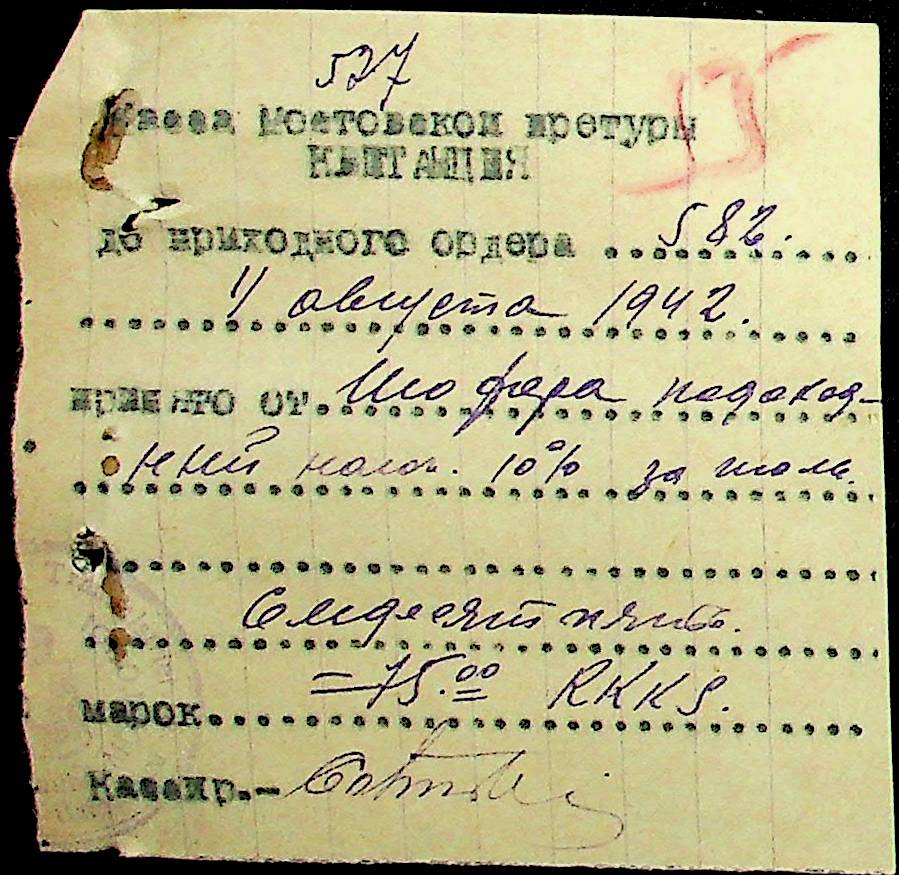 527
Касса Мостовской претуры
КВИТАНЦИЯ
до приходного ордера ...582.
11 августа 1942.
принято от. Шофера подоход-
ний налог. 10% за июль.
Семдесят пять.
марок =75.00 RKKS.
Кассир.-